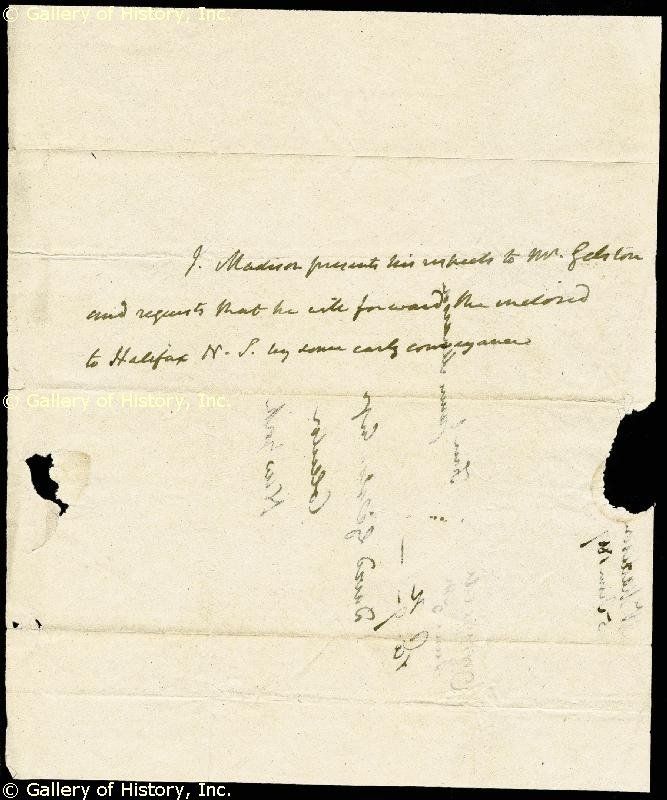 © Gallery of History, Inc.
J. Madison presents his respects to Mr. Gelston
and requests that he will forward the inclosed
to Halifax N. S. by some early conveyance
© Gallery of History, Inc.
New York
Collector
David Gelston Esqr
© Gallery of History, Inc.